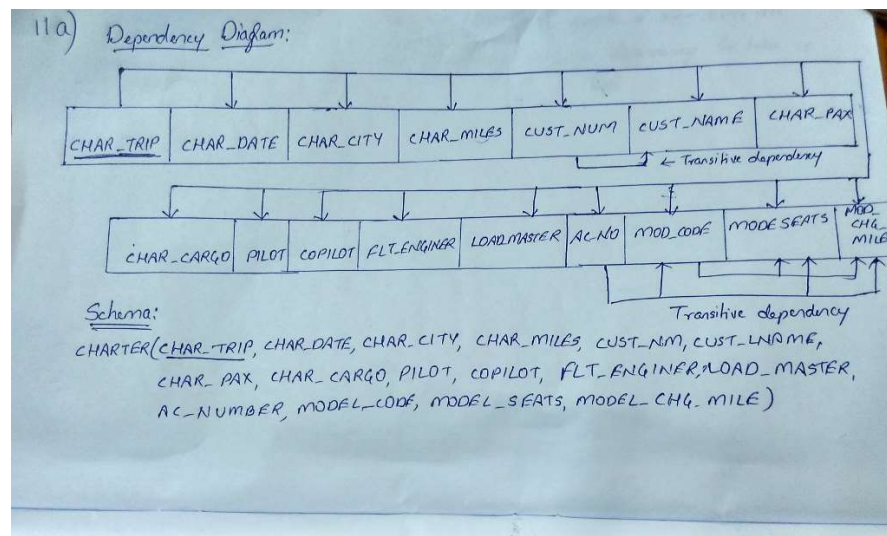 11a) Dependency Diagram:
CHAR_TRIP CHAR_DATE CHAR_CITY CHAR_MILES CUST_NUM CUST_NAME CHAR_PAX
← Transitive dependency
CHAR_CARGO PILOT COPILOT FLT_ENGINER LOADMASTER AC-NO MOD_CODE MODESEATS MOD_
CHG_
MILE
Transitive dependency
Schema:
CHARTER(CHAR_TRIP, CHAR_DATE, CHAR_CITY, CHAR_MILES, CUST_NM, CUST_LNAME,
CHAR_PAX, CHAR_CARGO, PILOT, COPILOT, FLT_ENGINER, LOAD_MASTER,
AC_NUMBER, MODEL_CODE, MODEL_SEATS, MODEL_CHG_MILE)